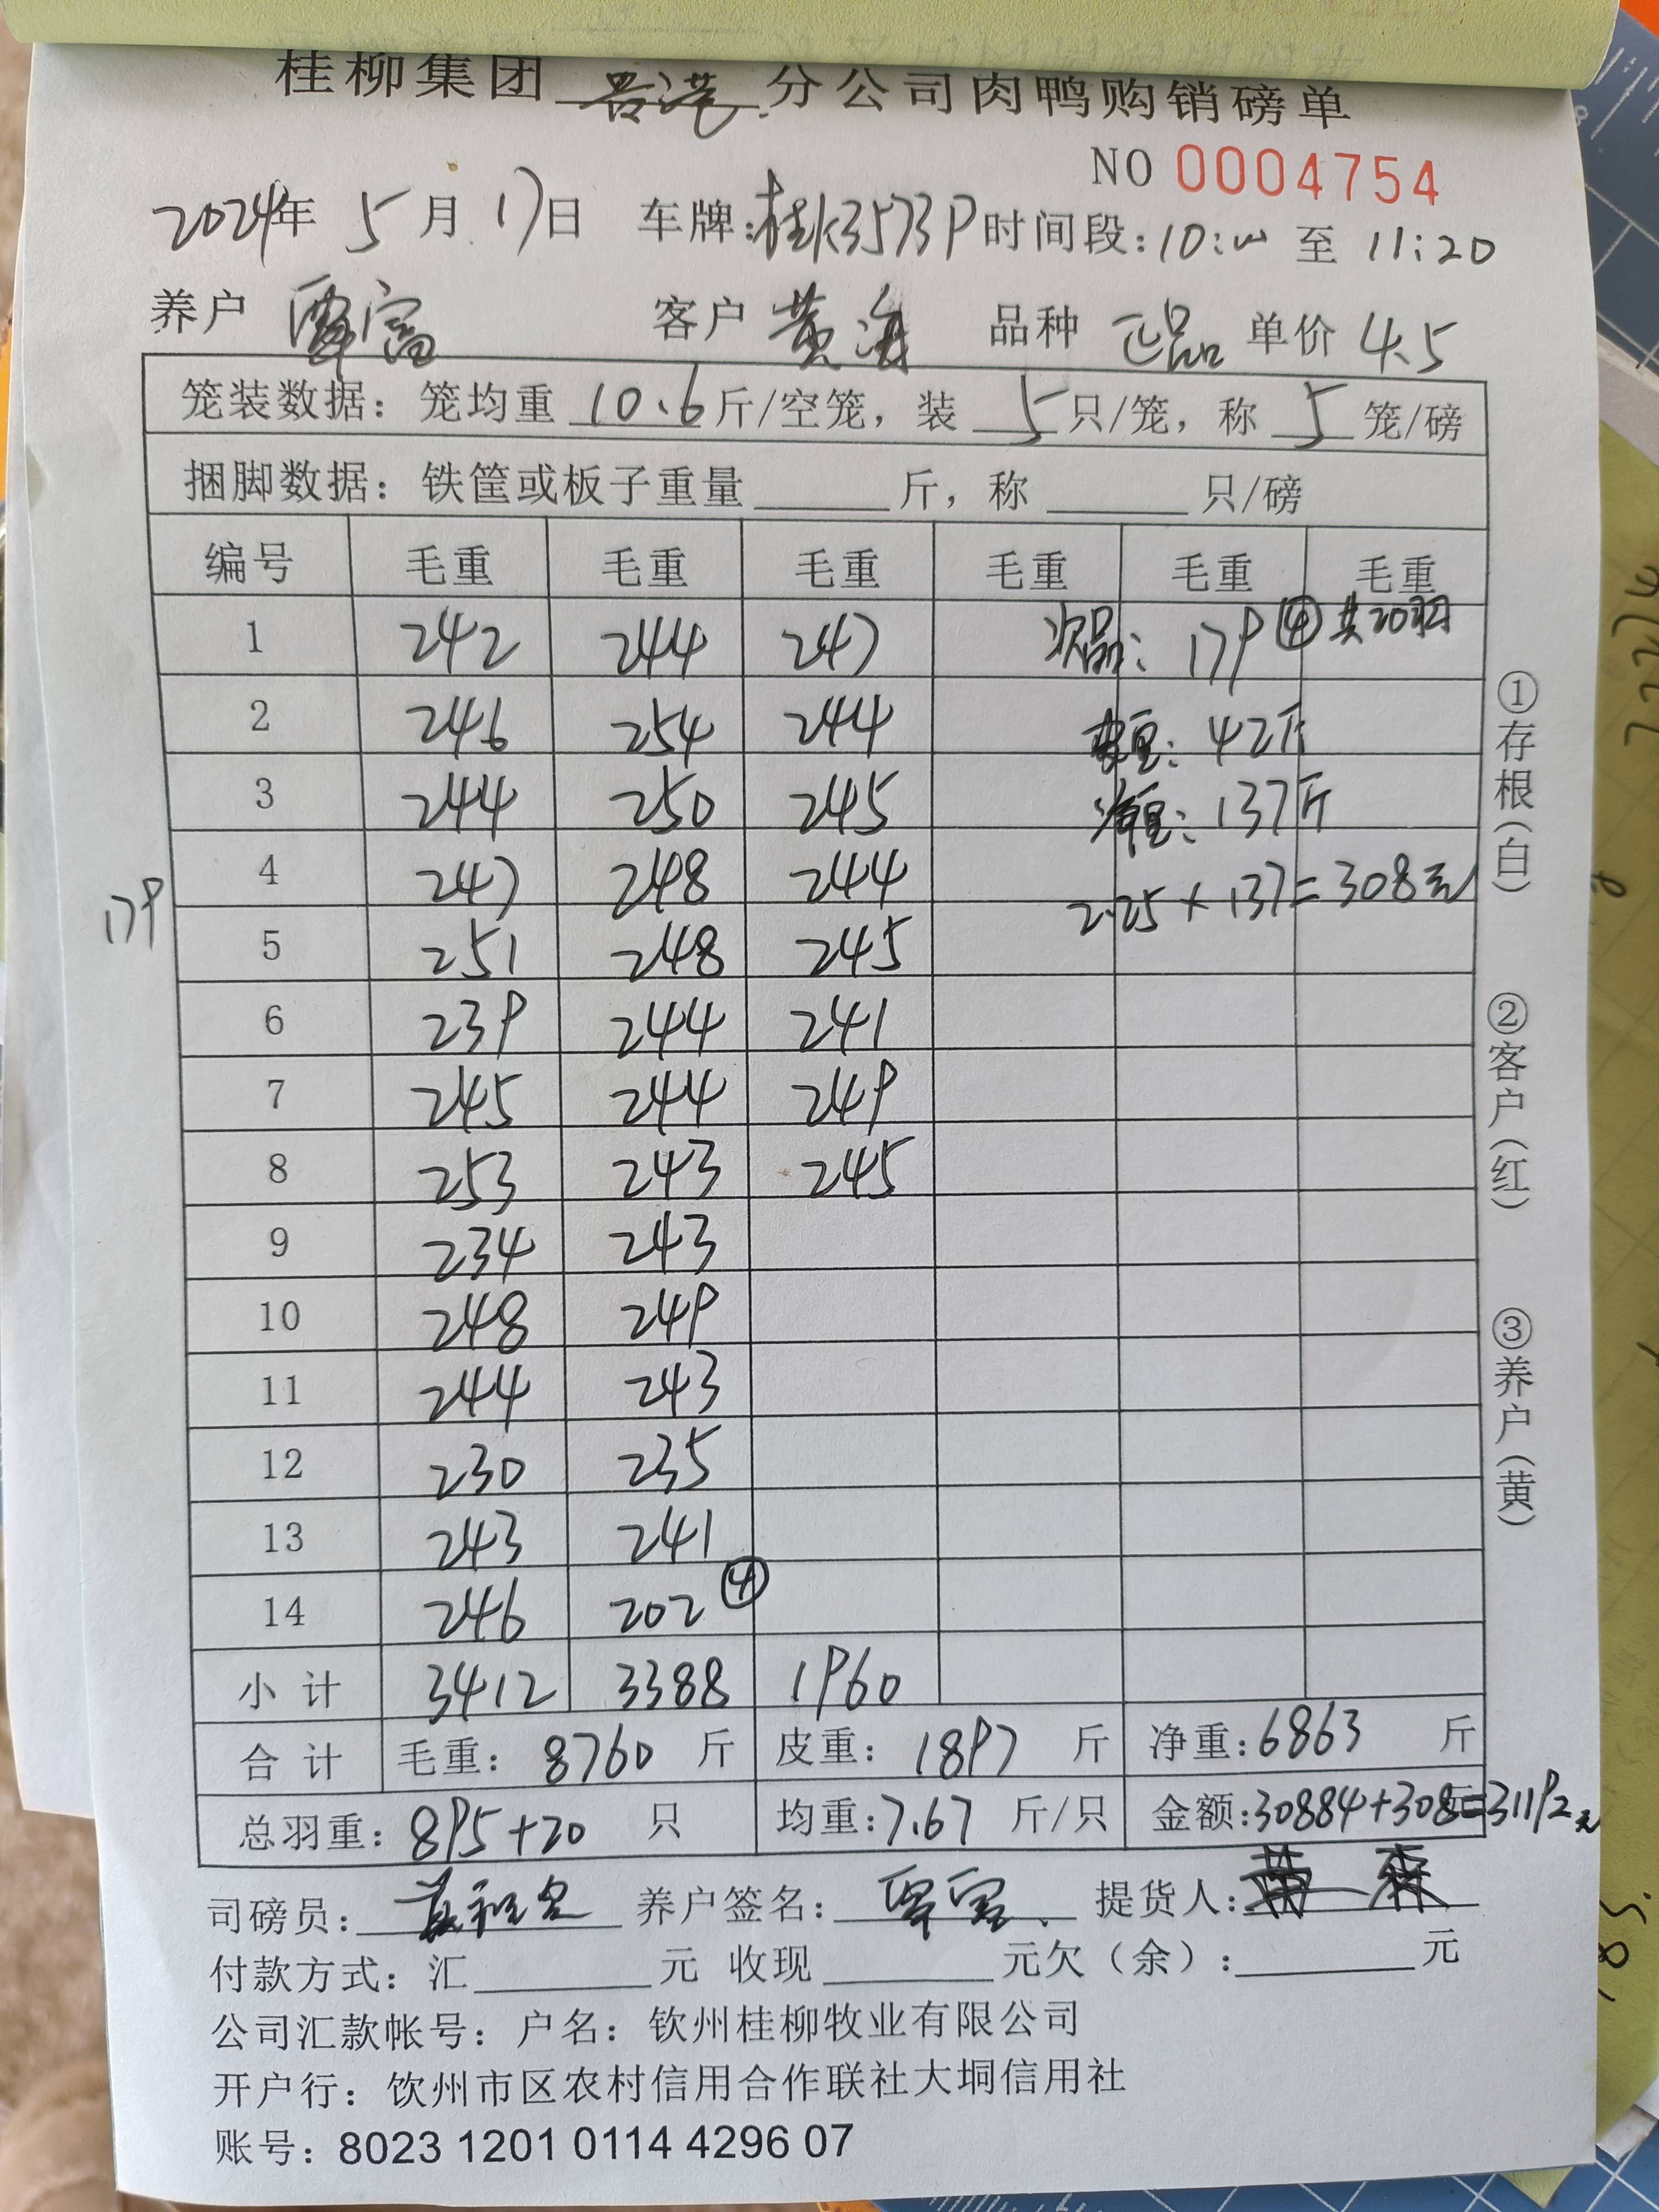 桂柳集团 贵港 分公司肉鸭购销磅单
NO 0004754
2024年 5 月 17日 车牌:桂K3573P 时间段:10:00 至 11:20
养户 覃富 客户 黄海 品种 正品 单价 4.5
笼装数据：笼均重 10.6 斤/空笼，装 5 只/笼，称 5 笼/磅
捆脚数据：铁筐或板子重量 斤，称 只/磅
编号 毛重 毛重 毛重 毛重 毛重 毛重
1 242 244 247 次品: 179 ④ 共20羽
2 246 254 244 皮重: 42斤
3 244 250 245 净重: 137斤
4 247 248 244 2.25×137=308元
179
5 251 248 245
6 239 244 241
7 245 244 249
8 253 243 245
9 234 243
10 248 249
11 244 243
12 230 235
13 243 241
14 246 202 ④
小计 3412 3388 1960
合计 毛重: 8760 斤 皮重: 1897 斤 净重: 6863 斤
总羽重: 895+20 只 均重: 7.67 斤/只 金额: 30884+308=31192元
司磅员: 养户签名: 覃富 提货人:
付款方式: 汇 元 收现 元欠（余）: 元
公司汇款帐号: 户名: 钦州桂柳牧业有限公司
开户行: 钦州市区农村信用合作联社大垌信用社
账号: 8023 1201 0114 4296 07
①存根(白)
②客户(红)
③养户(黄)